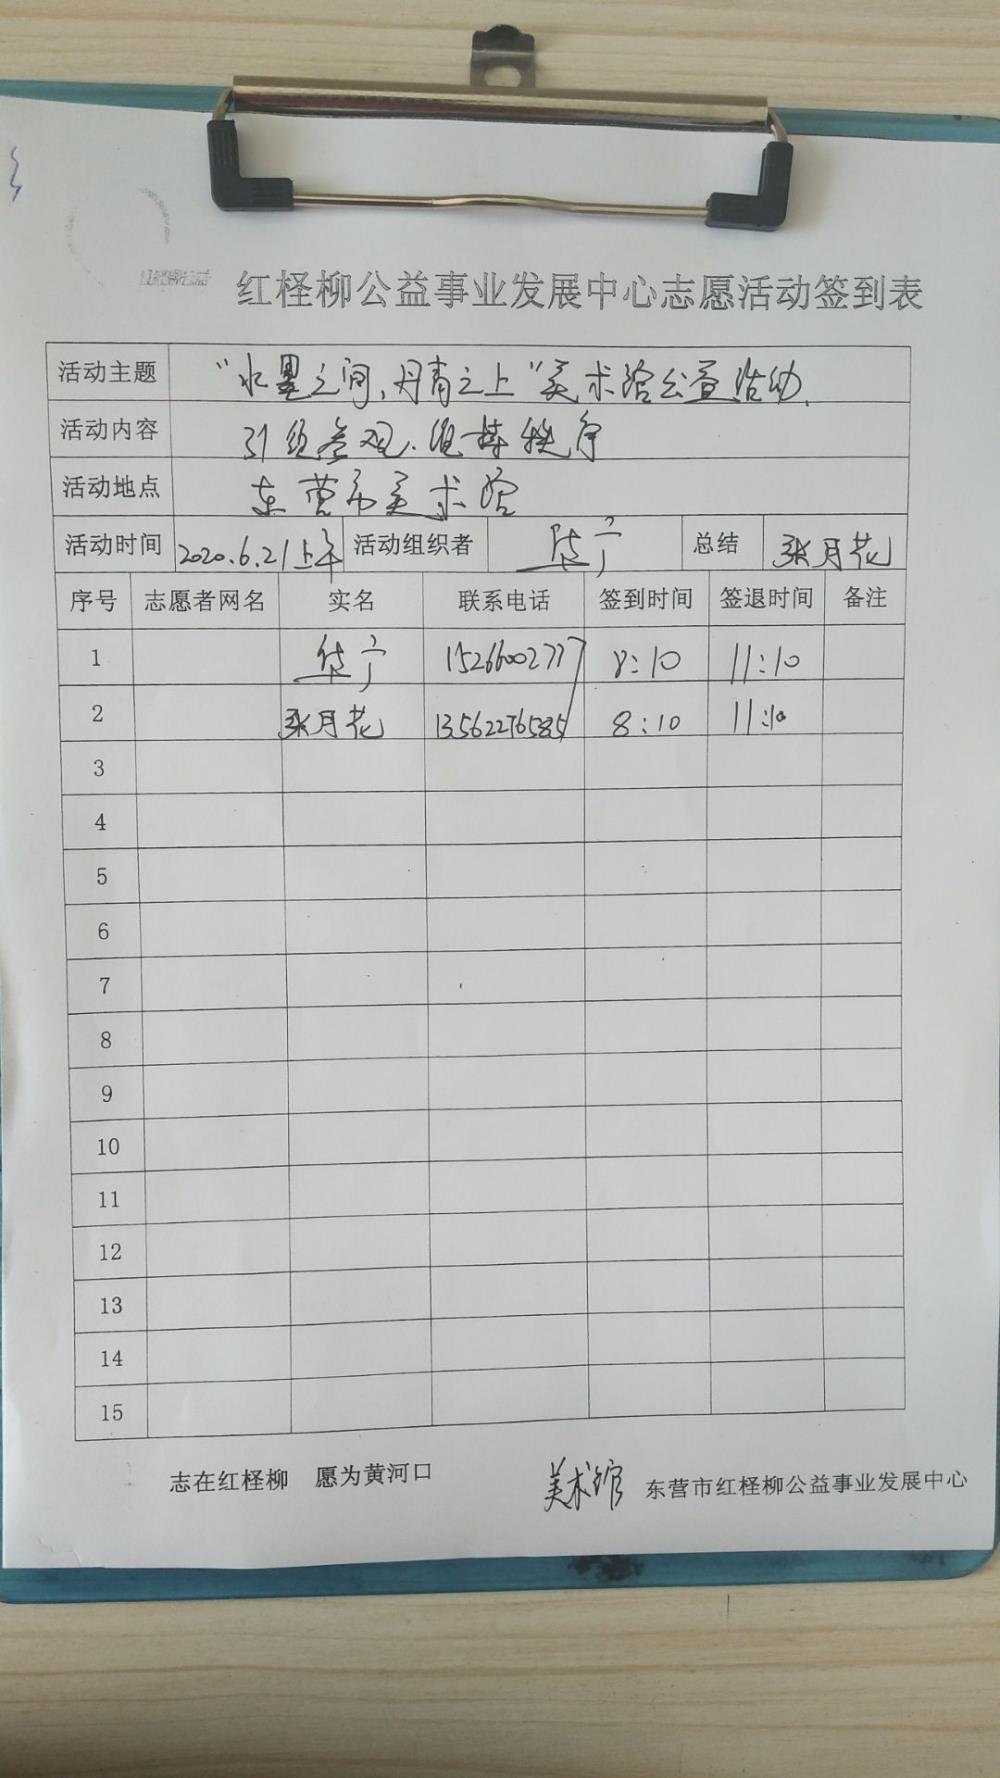 红柽柳公益事业发展中心志愿活动签到表
活动主题 “水墨之间,丹青之上”美术馆公益活动.
活动内容 引领参观.维持秩序
活动地点 东营市美术馆
活动时间 2020.6.21上午 活动组织者 总结 张月花
序号 志愿者网名 实名 联系电话 签到时间 签退时间 备注
1 8:10 11:10
2 张月花 13562276585 8:10 11:10
3
4
5
6
7
8
9
10
11
12
13
14
15
志在红柽柳 愿为黄河口 美术馆 东营市红柽柳公益事业发展中心